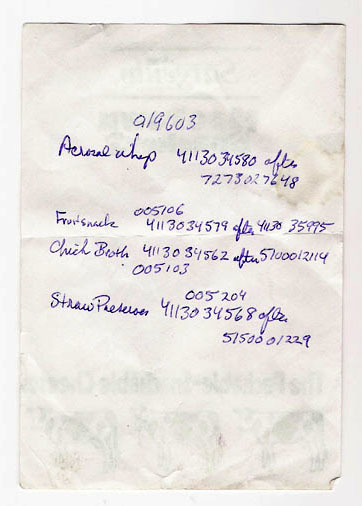 019603
Aerosal whip 4113034580 after
7273027648
005106
Frontsnack 4113034579 after 41130 35995
Chick Broth 4113034562 after 5100012114
005103
005204
Straw Preserves 4113034568 after
5150001229